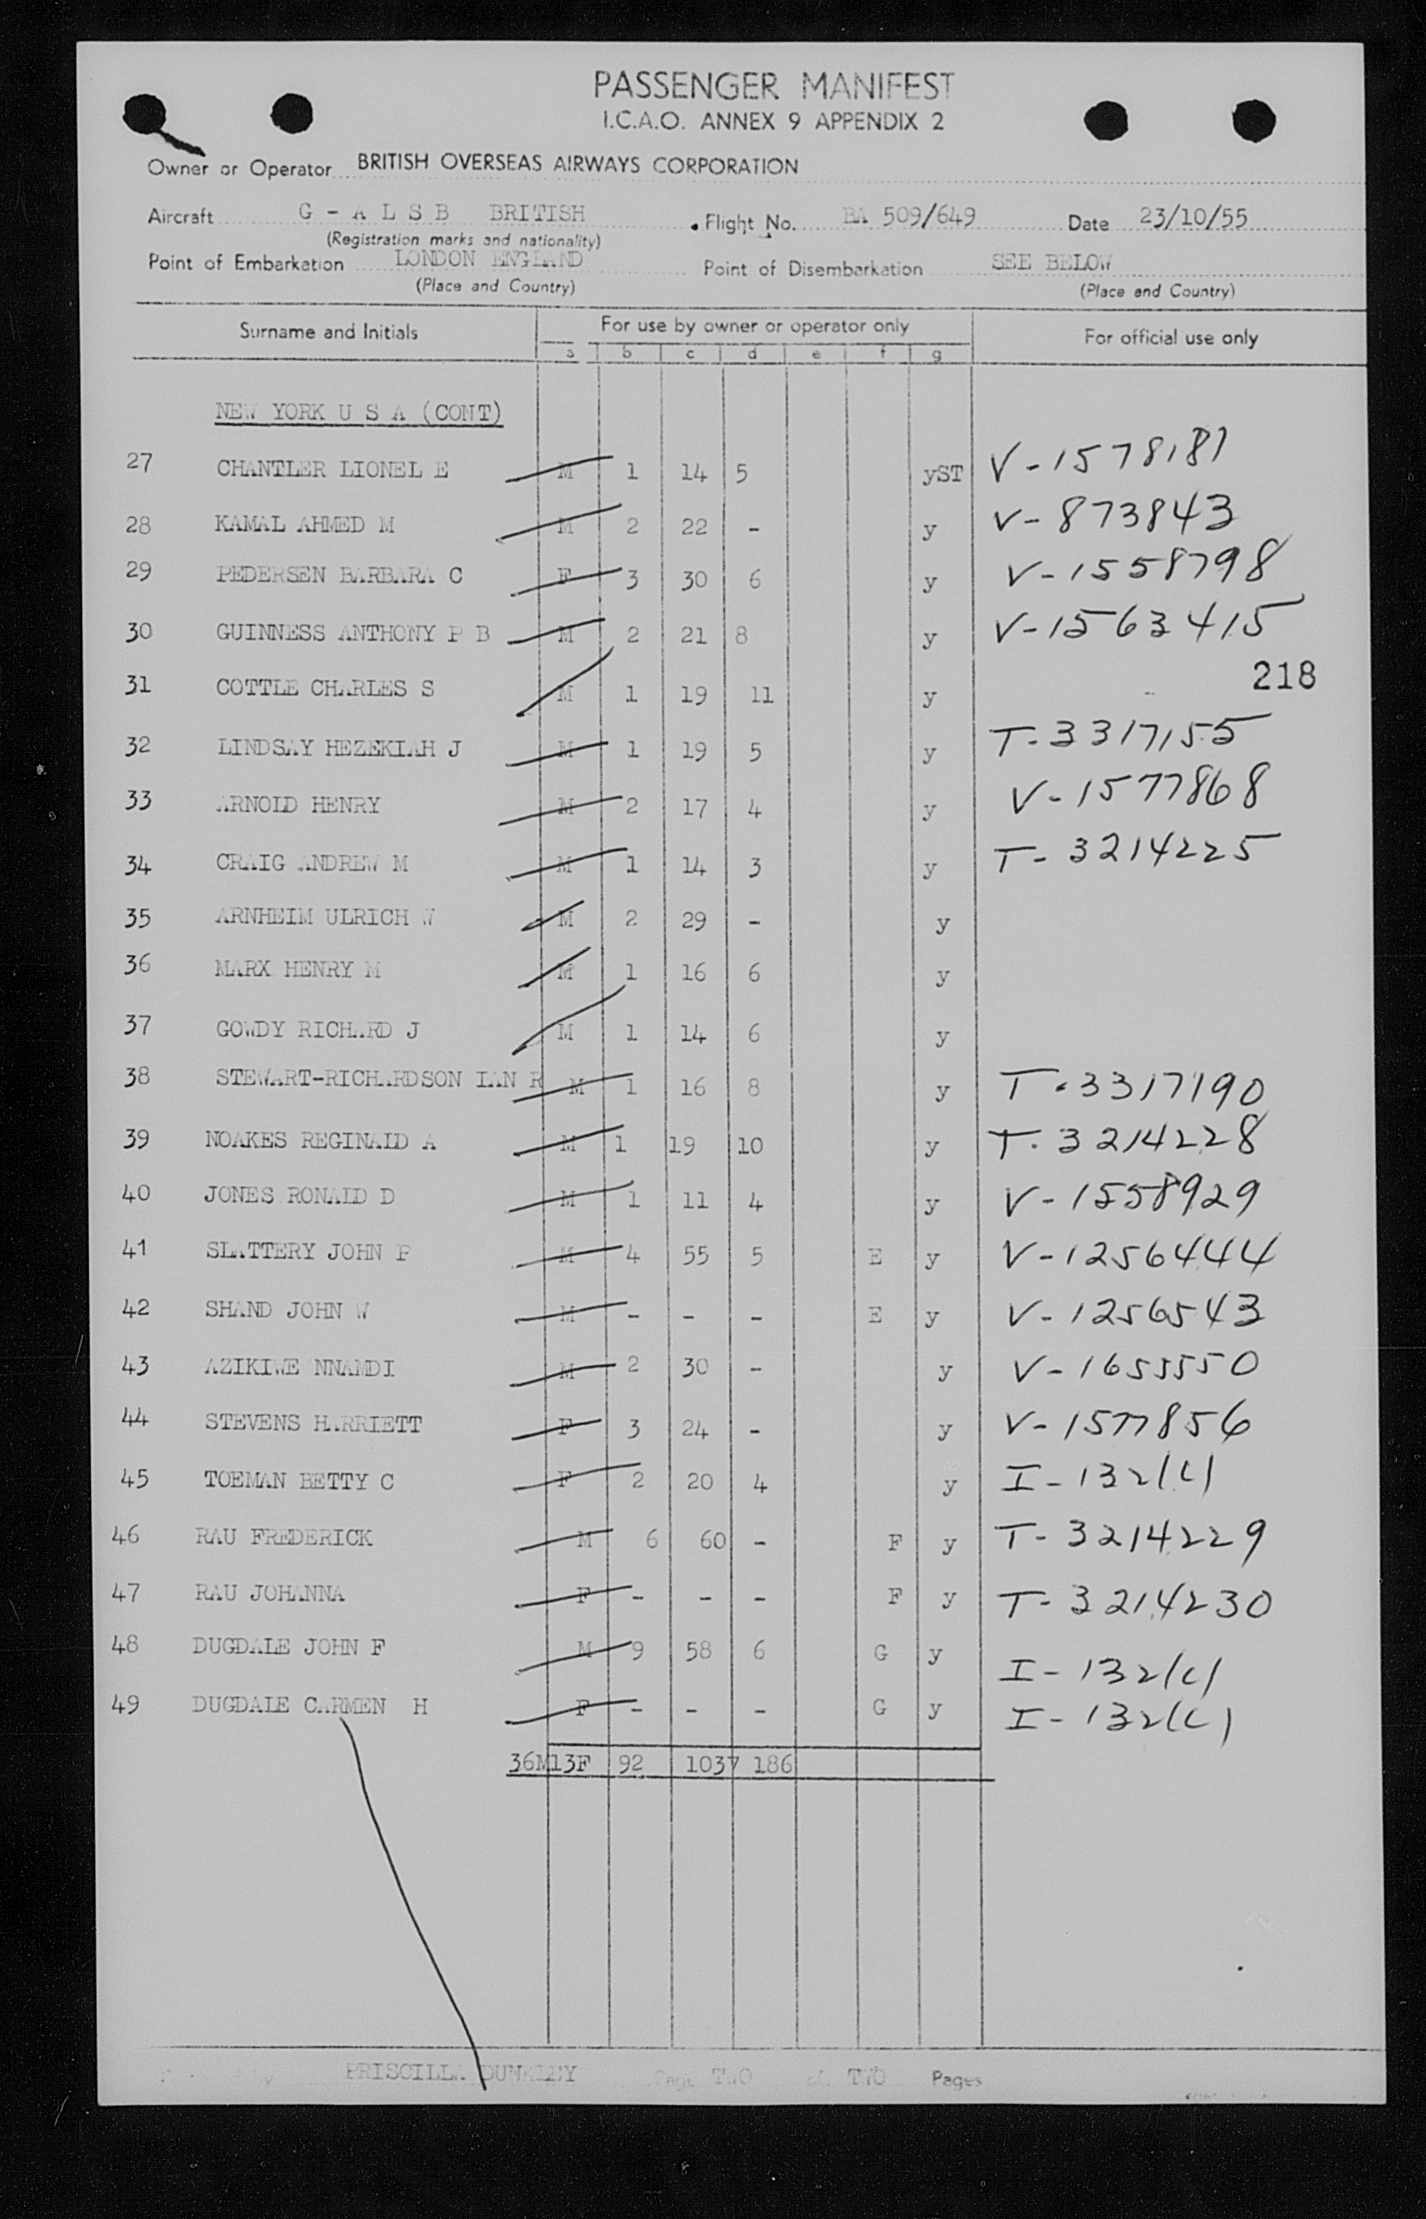 PASSENGER MANIFEST
I.C.A.O. ANNEX 9 APPENDIX 2
Owner or Operator BRITISH OVERSEAS AIRWAYS CORPORATION
Aircraft G - A L S B BRITISH Flight No. BA 509/649 Date 23/10/55
(Registration marks and nationality)
Point of Embarkation LONDON ENGLAND Point of Disembarkation SEE BELOW
(Place and Country) (Place and Country)
Surname and Initials For use by owner or operator only For official use only
a b c d e f g
NEW YORK U S A (CONT)
27 CHANTLER LIONEL E M 1 14 5 yST V-1578181
28 KAMAL AHMED M M 2 22 - y V-873843
29 PEDERSEN BARBARA C F 3 30 6 y V-1558798
30 GUINNESS ANTHONY P B M 2 21 8 y V-1563415
31 COTTLE CHARLES S M 1 19 11 y 218
32 LINDSAY HEZEKIAH J M 1 19 5 y T-3317155
33 ARNOLD HENRY M 2 17 4 y V-1577868
34 CRAIG ANDREW M M 1 14 3 y T-3214225
35 ARNHEIM ULRICH W M 2 29 - y
36 MARX HENRY M M 1 16 6 y
37 GOWDY RICHARD J M 1 14 6 y
38 STEWART-RICHARDSON IAN R M 1 16 8 y T-3317190
39 NOAKES REGINALD A M 1 19 10 y T-3214228
40 JONES RONALD D M 1 11 4 y V-1558929
41 SLATTERY JOHN P M 4 55 5 E y V-1256444
42 SHAND JOHN W M - - - E y V-1256543
43 AZIKIWE NNAMDI M 2 30 - y V-1655550
44 STEVENS HARRIETT F 3 24 - y V-1577856
45 TOEMAN BETTY C F 2 20 4 y I-132(C)
46 RAU FREDERICK M 6 60 - F y T-3214229
47 RAU JOHANNA F - - - F y T-3214230
48 DUGDALE JOHN F M 9 58 6 G y I-132(C)
49 DUGDALE CARMEN H F - - - G y I-132(C)
36M13F 92 1037 186
PRISCILLA DUNKLEY Page TWO of TWO Pages